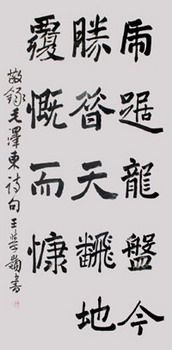 虎踞龍盤今
勝昔天翻地
覆慨而慷
敬録毛澤東詩句王楚鞠書